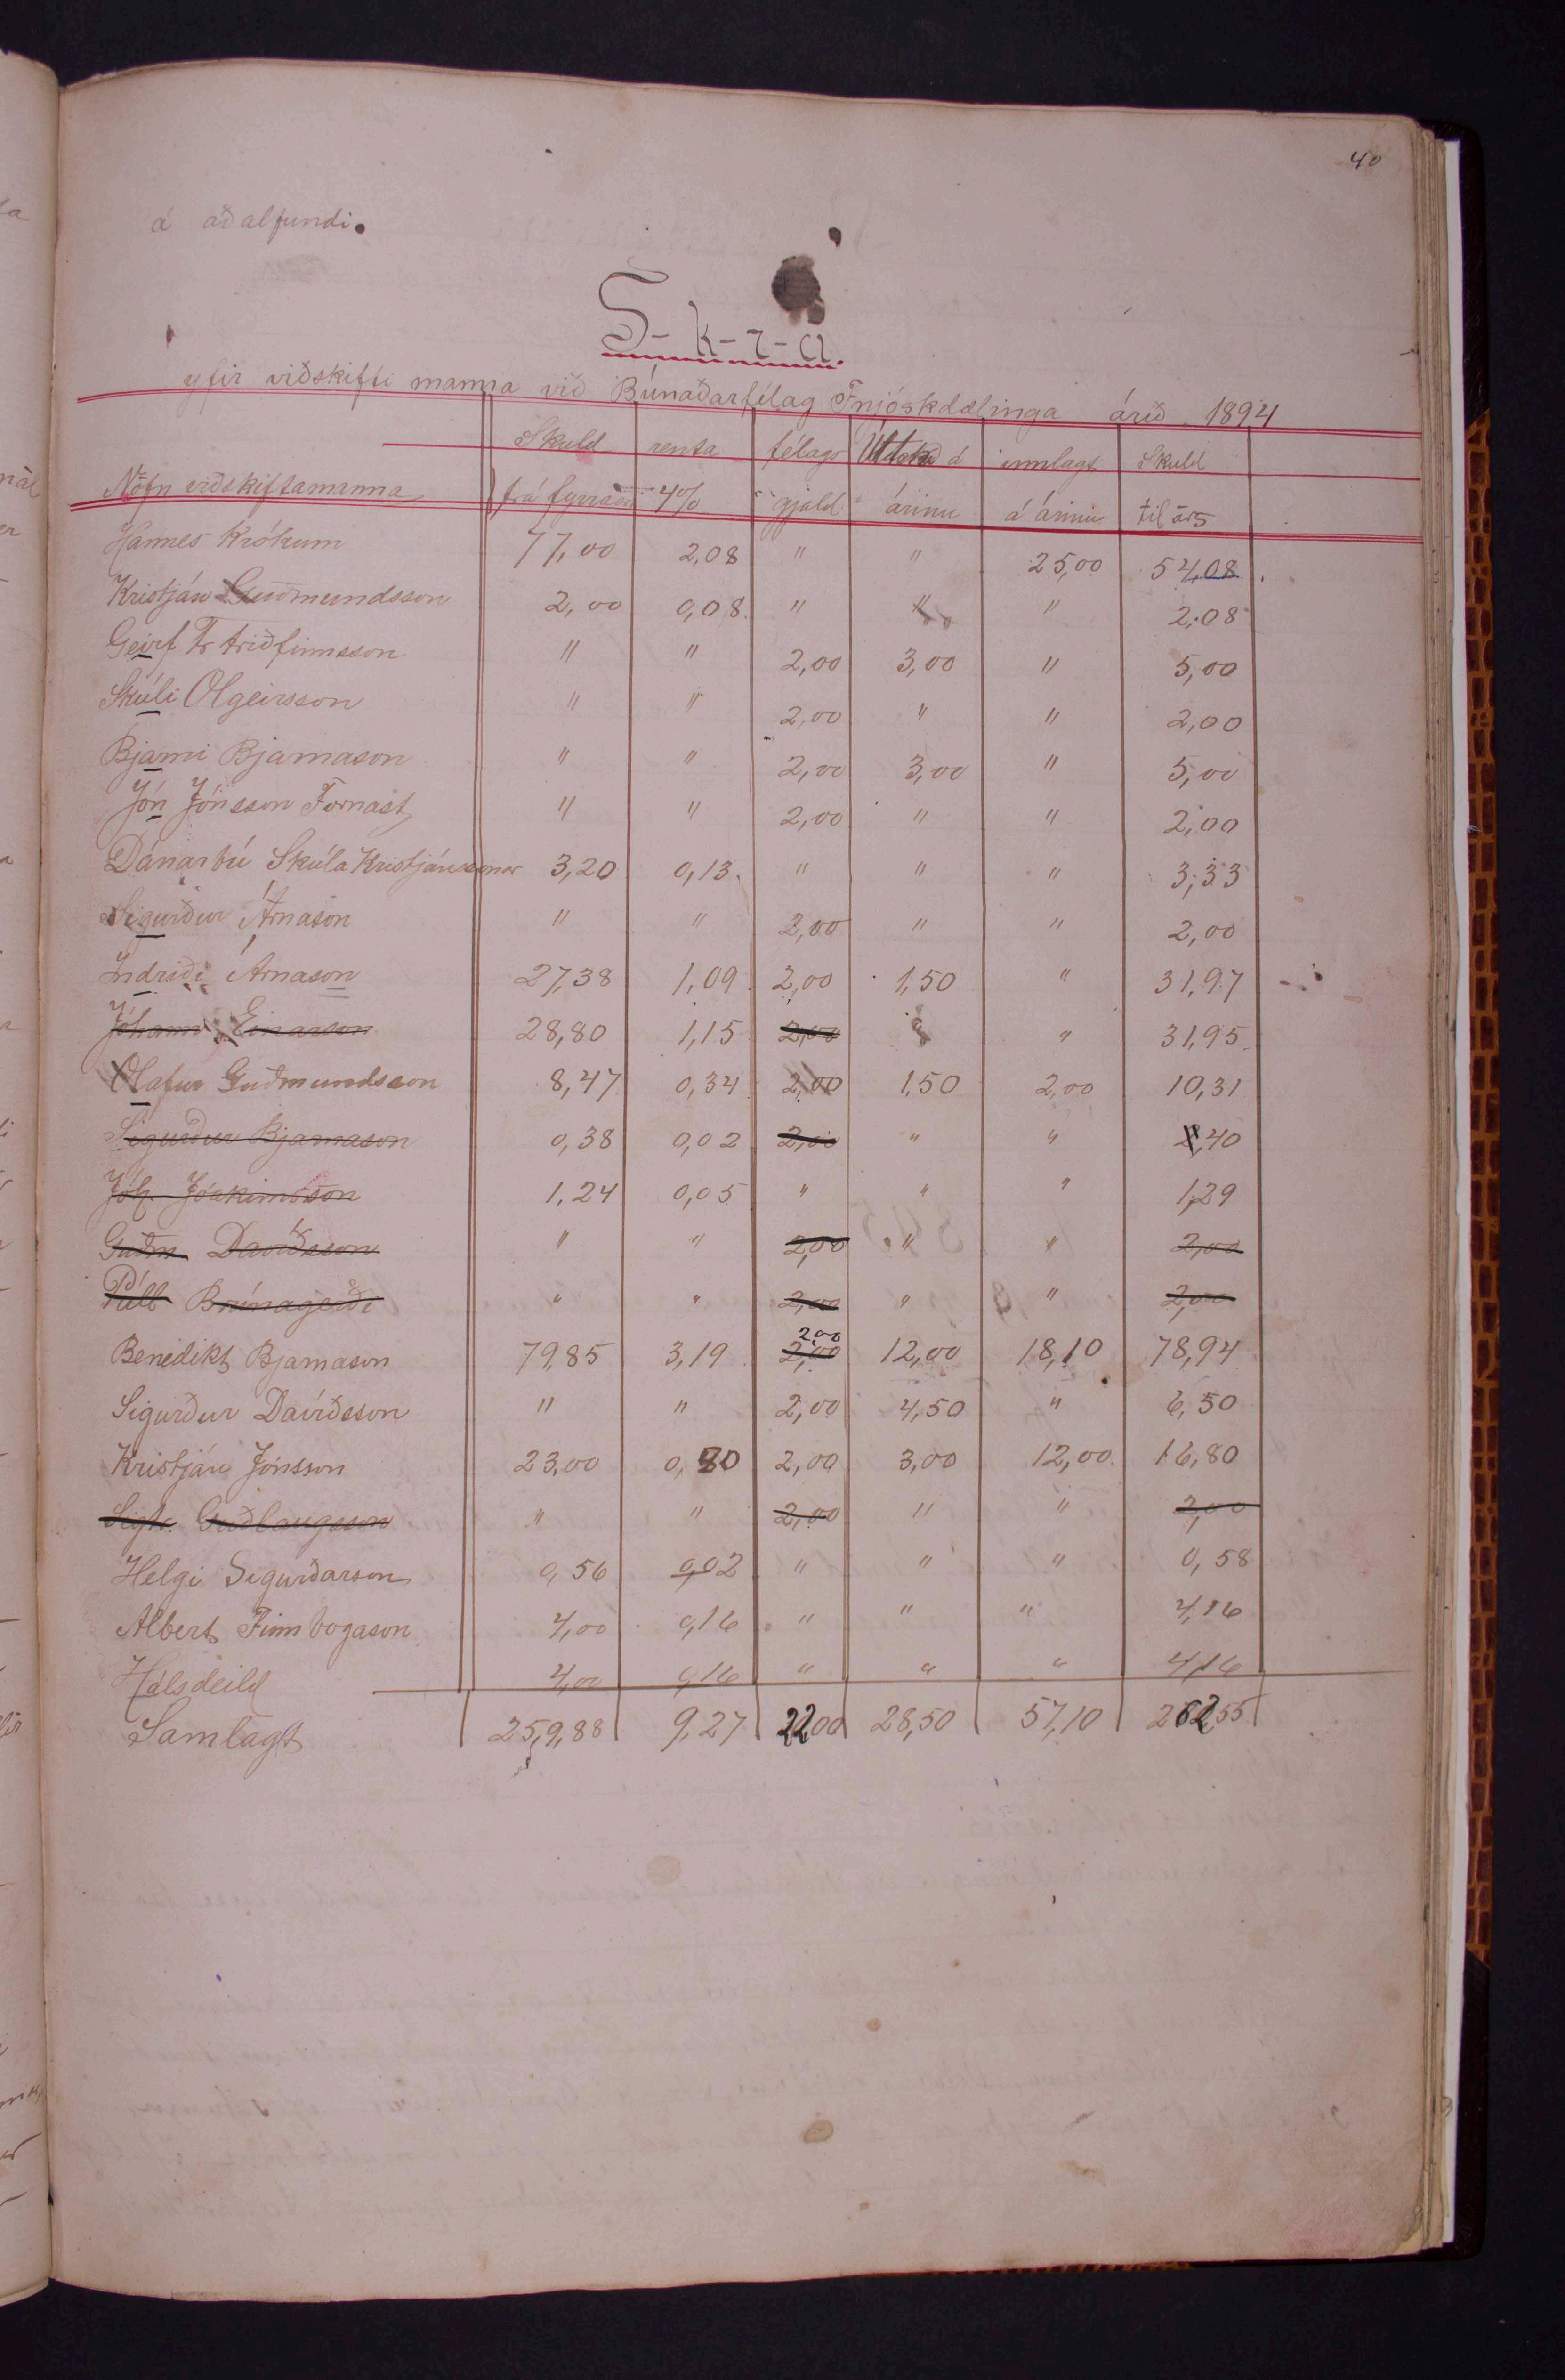 40
á aðalfundi.
S-k-r-á.
yfir viðskifti manna við Búnaðarfélag Fnjóskdælinga árið 1894
Skuld renta félags Úttekið á innlagt Skuld
Nöfn viðskiftamanna frá fyrra ári 4% gjald árinu á árinu til árs
Hannes Krókum 77,00 2,08 " " 25,00 54,08
Kristján Guðmundsson 2,00 0,08 " " " 2,08
Geirf Tr Friðfinnsson " " 2,00 3,00 " 5,00
Skúli Olgeirsson " " 2,00 " " 2,00
Bjarni Bjarnason " " 2,00 3,00 " 5,00
Jón Jónsson Fornast " " 2,00 " " 2,00
Dánarbú Skúla Kristjánssonar 3,20 0,13 " " " 3,33
Sigurður Árnason " " 2,00 " " 2,00
Indriði Árnason 27,38 1,09 2,00 1,50 " 31,97
Jóhann Einarson 28,80 1,15 2,00 " 31,95
Olafur Guðmundsson 8,47 0,34 2,00 1,50 2,00 10,31
Sigurður Bjarnason 0,38 0,02 2,00 " " 2,40
Jóh. Jóakimsson 1,24 0,05 " " " 1,29
Guðm Davíðsson " " 2,00 " " 2,00
Páll Brúnagerði " " 2,00 " " 2,00
2,00
Benedikt Bjarnason 79,85 3,19 2,00 12,00 18,10 78,94
Sigurður Davíðsson " " 2,00 4,50 " 6,50
Kristján Jónsson 23,00 0,80 2,00 3,00 12,00 16,80
Sigtr. Guðlaugsson " " 2,00 " " 2,00
Helgi Sigurðarson 0,56 0,02 " " " 0,58
Albert Finnbogason 4,00 0,16 " " " 4,16
Hálsdeild 4,00 0,16 " " " 4,16
Samlagt 259,88 9,27 22,00 28,50 57,10 262,55